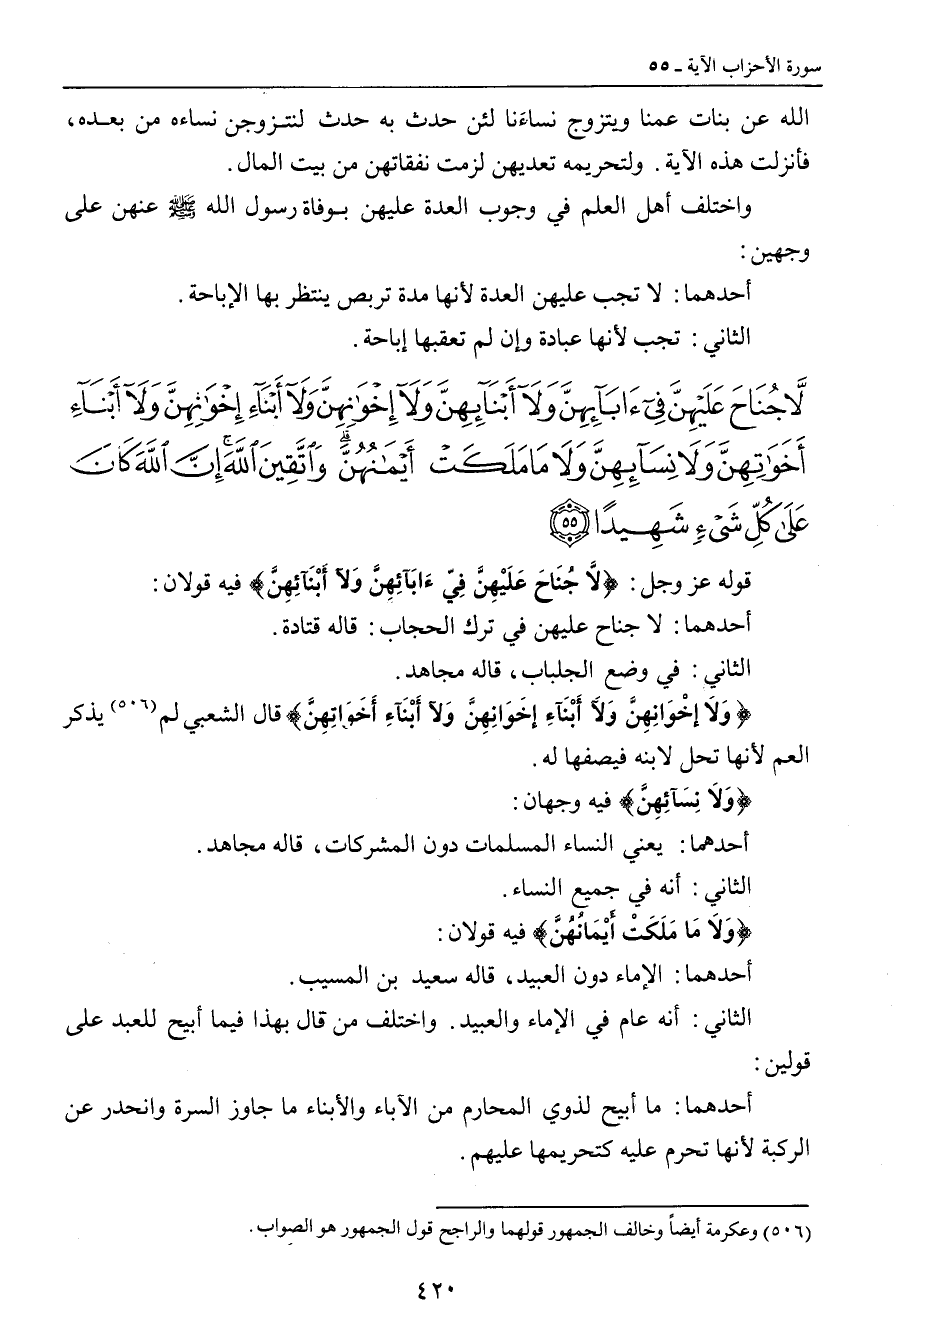 سورة الأحزاب الآية ـ ٥٥
الله عن بنات عمنا ويتزوج نساءَنا لئن حدث به حدث لنتـزوجن نساءه من بعـده،
فأنزلت هذه الآية. ولتحريمه تعديهن لزمت نفقاتهن من بيت المال.
واختلف أهل العلم في وجوب العدة عليهن بـوفاة رسول الله ﷺ عنهن على
وجهين:
أحدهما: لا تجب عليهن العدة لأنها مدة تربص ينتظر بها الإباحة.
الثاني: تجب لأنها عبادة وإن لم تعقبها إباحة.
لَّا جُنَاحَ عَلَيْهِنَّ فِىٓ ءَابَآئِهِنَّ وَلَآ أَبْنَآئِهِنَّ وَلَآ إِخْوَٰنِهِنَّ وَلَآ أَبْنَآءِ إِخْوَٰنِهِنَّ وَلَآ أَبْنَآءِ
أَخَوَٰتِهِنَّ وَلَا نِسَآئِهِنَّ وَلَا مَا مَلَكَتْ أَيْمَٰنُهُنَّ ۗ وَٱتَّقِينَ ٱللَّهَ ۚ إِنَّ ٱللَّهَ كَانَ
عَلَىٰ كُلِّ شَىْءٍ شَهِيدًا ۝٥٥
قوله عز وجل: ﴿لَّا جُنَاحَ عَلَيْهِنَّ فِيٓ ءَابَآئِهِنَّ وَلَآ أَبْنَآئِهِنَّ﴾ فيه قولان:
أحدهما: لا جناح عليهن في ترك الحجاب: قاله قتادة.
الثاني: في وضع الجلباب، قاله مجاهد.
﴿وَلَا إخْوَانِهِنَّ وَلَآ أَبْنَآءِ إخَوَانِهِنَّ وَلآ أَبْنَآءِ أَخَوَاتِهِنَّ﴾ قال الشعبي لم(٥٠٦) يذكر
العم لأنها تحل لابنه فيصفها له.
﴿وَلَا نِسَآئِهِنَّ﴾ فيه وجهان:
أحدهما: يعني النساء المسلمات دون المشركات، قاله مجاهد.
الثاني: أنه في جميع النساء.
﴿وَلَا مَا مَلَكَتْ أَيْمَانُهُنَّ﴾ فيه قولان:
أحدهما: الإماء دون العبيد، قاله سعيد بن المسيب.
الثاني: أنه عام في الإماء والعبيد. واختلف من قال بهذا فيما أبيح للعبد على
قولين:
أحدهما: ما أبيح لذوي المحارم من الآباء والأبناء ما جاوز السرة وانحدر عن
الركبة لأنها تحرم عليه كتحريمها عليهم.
(٥٠٦) وعكرمة أيضاً وخالف الجمهور قولهما والراجح قول الجمهور هو الصواب.
٤٢٠